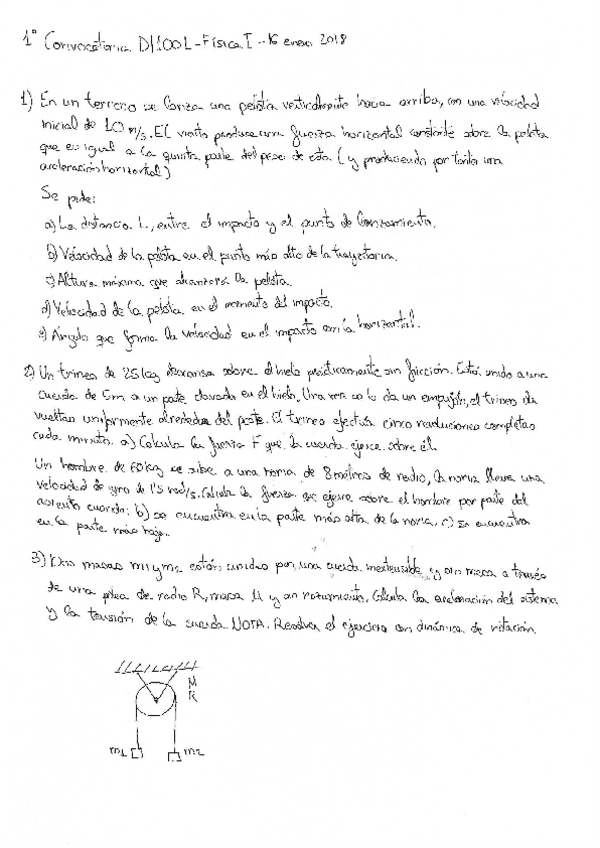 1º Convocatoria DI1001 - Física I - 16 enero 2018
1) En un terreno se lanza una pelota verticalmente hacia arriba, con una velocidad
inicial de 10 m/s. El viento produce una fuerza horizontal constante sobre la pelota
que es igual a la quinta parte del peso de esta (y produciendo por tanto una
aceleración horizontal)
Se pide:
a) La distancia L, entre el impacto y el punto de lanzamiento.
b) Velocidad de la pelota en el punto más alto de la trayectoria.
c) Altura máxima que alcanzará la pelota.
d) Velocidad de la pelota en el momento del impacto.
e) Ángulo que forma la velocidad en el impacto con la horizontal.
2) Un trineo de 25 kg descansa sobre el hielo prácticamente sin fricción. Está unido a una
cuerda de 5m a un poste clavado en el hielo. Una vez se le da un empujón, el trineo da
vueltas uniformemente alrededor del poste. El trineo efectúa cinco revoluciones completas
cada minuto. a) Calcula la fuerza F que la cuerda ejerce sobre él.
Un hombre de 60 kg se sube a una noria de 8 metros de radio, la noria lleva una
velocidad de giro de 1'5 rad/s. Calcula la fuerza que ejerce sobre el hombre por parte del
asiento cuando: b) se encuentra en la parte más alta de la noria. c) se encuentra
en la parte más baja.
3) Dos masas m1 y m2 están unidas por una cuerda inextensible y sin masa a través
de una polea de radio R, masa M y sin rozamiento. Calcula la aceleración del sistema
y la tensión de la cuerda. NOTA. Resolver el ejercicio con dinámica de rotación.
M
R
m1 m2